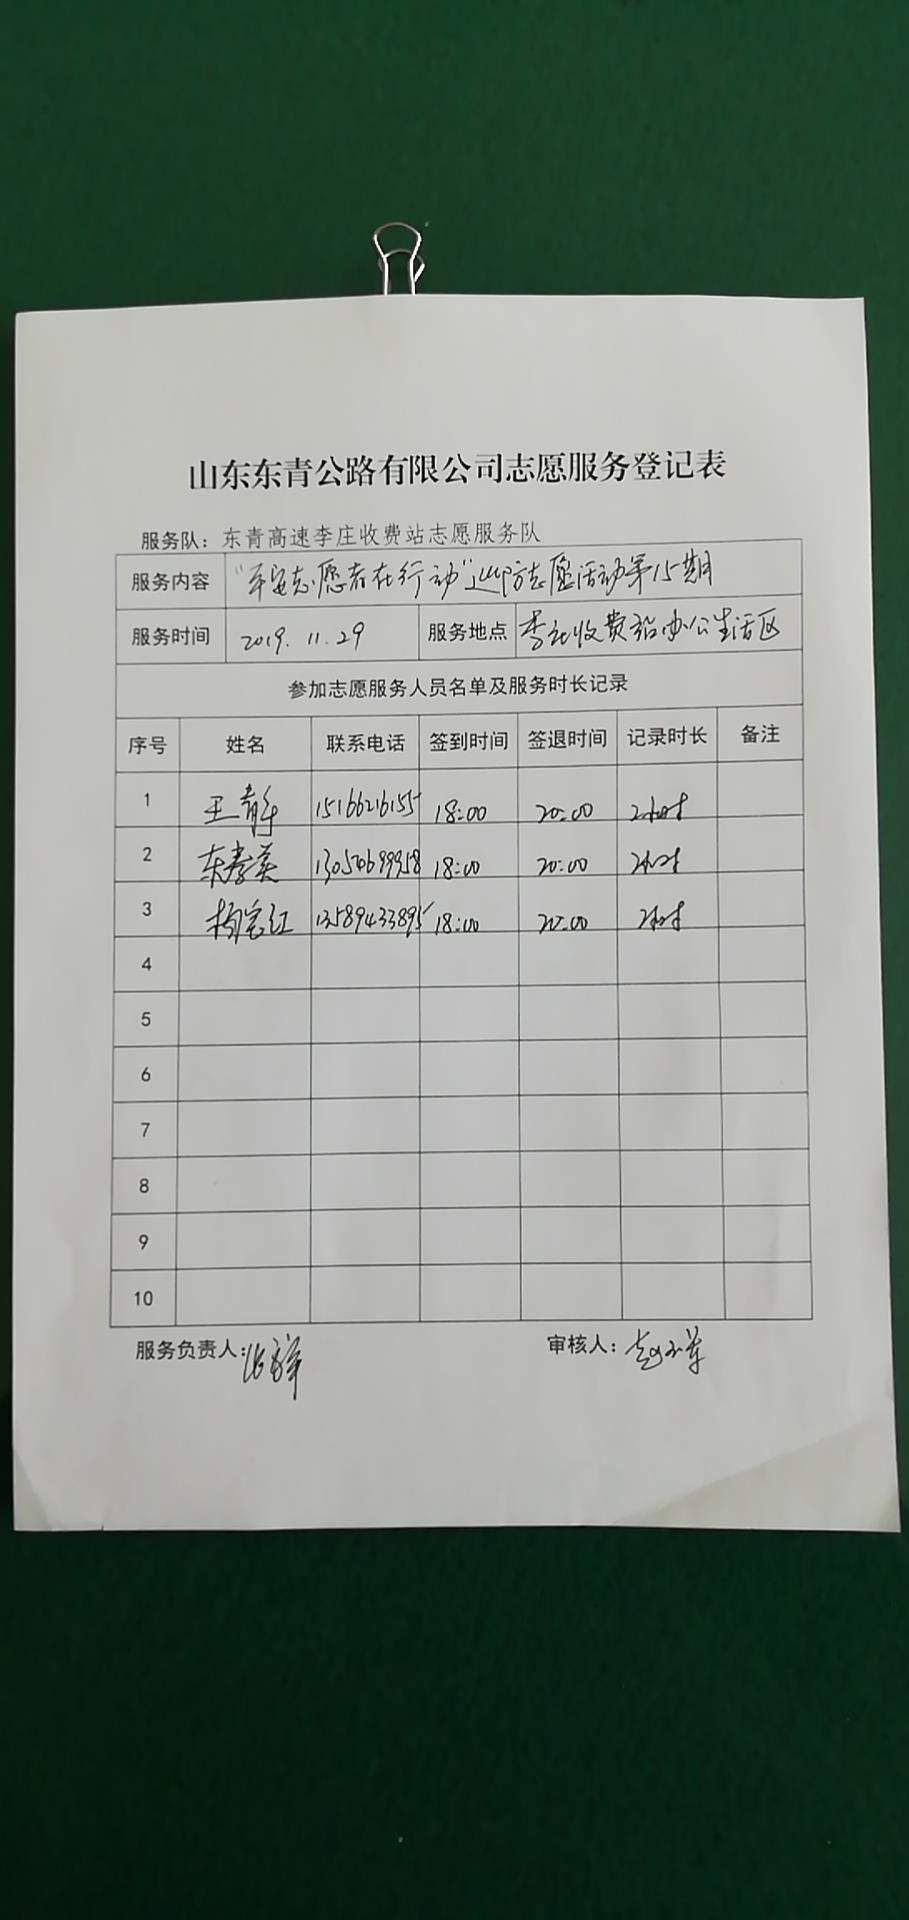 山东东青公路有限公司志愿服务登记表
服务队：东青高速李庄收费站志愿服务队
服务内容 “平安志愿者在行动”巡防志愿活动第15期
服务时间 2019.11.29 服务地点 李庄收费站办公生活区
参加志愿服务人员名单及服务时长记录
序号 姓名 联系电话 签到时间 签退时间 记录时长 备注
1 王青年 15166216155 18:00 20:00 2小时
2 东孝英 13054699958 18:00 20:00 2小时
3 杨宝红 13589433895 18:00 20:00 2小时
4
5
6
7
8
9
10
服务负责人： 审核人：